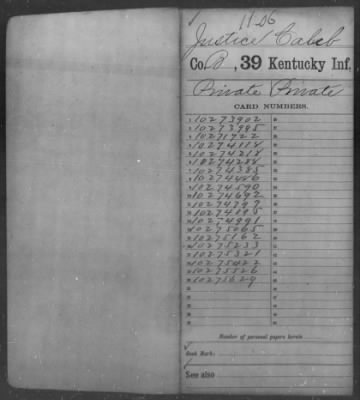 1186
Justice Caleb
Co. B, 39 Kentucky Inf.
Private Private
CARD NUMBERS.
10273902
10273995
10274118
10274218
10274284
10274385
10274486
10274590
10274692
10274797
10274991
10275065
10275162
10275233
10275321
10275422
10275526
10275629
Number of personal papers herein
Book Mark:
See also